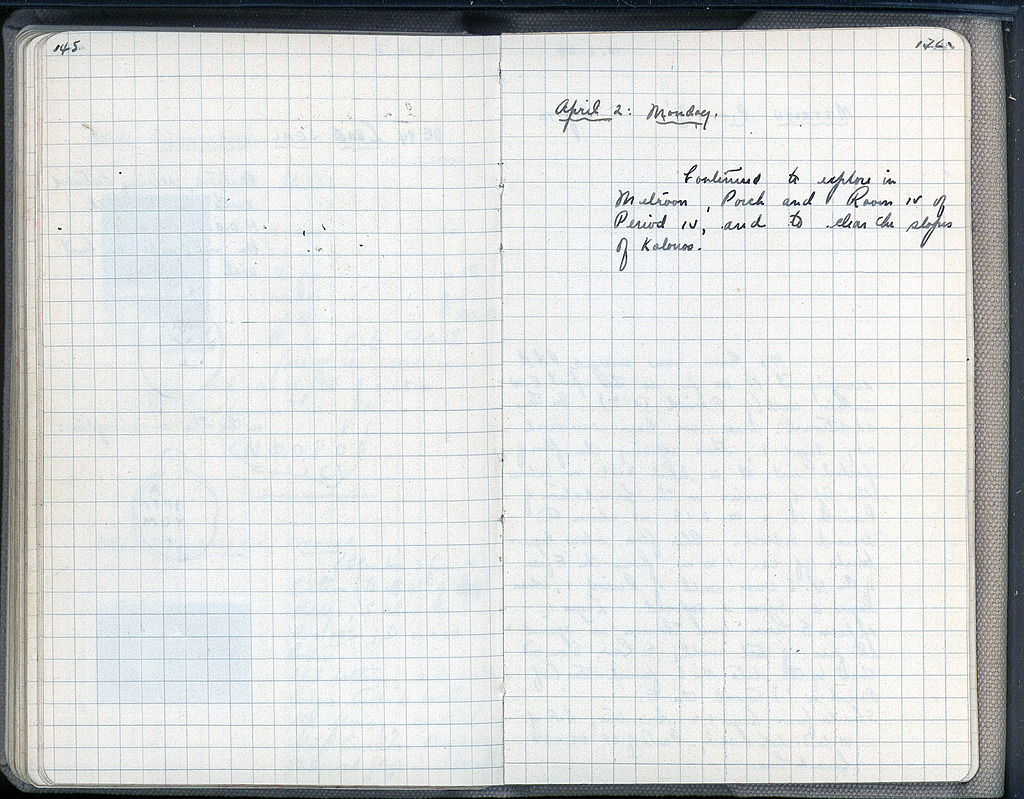 145
146
April 2: Monday.
Continued to explore in
Metroon, Porch and Room IV of
Period IV, and to clear the slopes
of Kolonos.